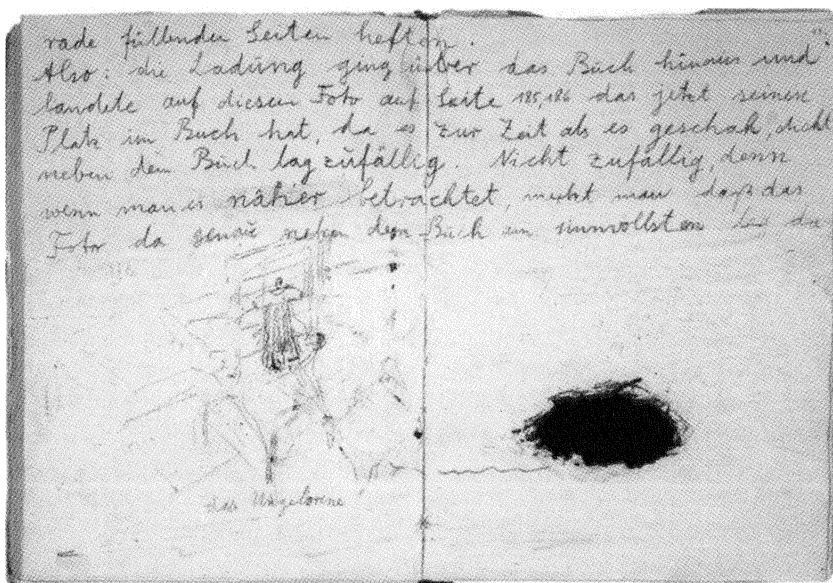 rade füllenden Seiten heften.
Also: die Ladung ging über das Buch hinaus und
landete auf diesem Foto auf Seite 185,186 das jetzt seinen
Platz im Buch hat, da es zur Zeit als es geschah, dicht
neben dem Buch lag zufällig. Nicht zufällig, denn
wenn man es näher betrachtet, merkt man dass das
Foto da genau neben dem Buch am sinnvollsten da
das Ungeborene